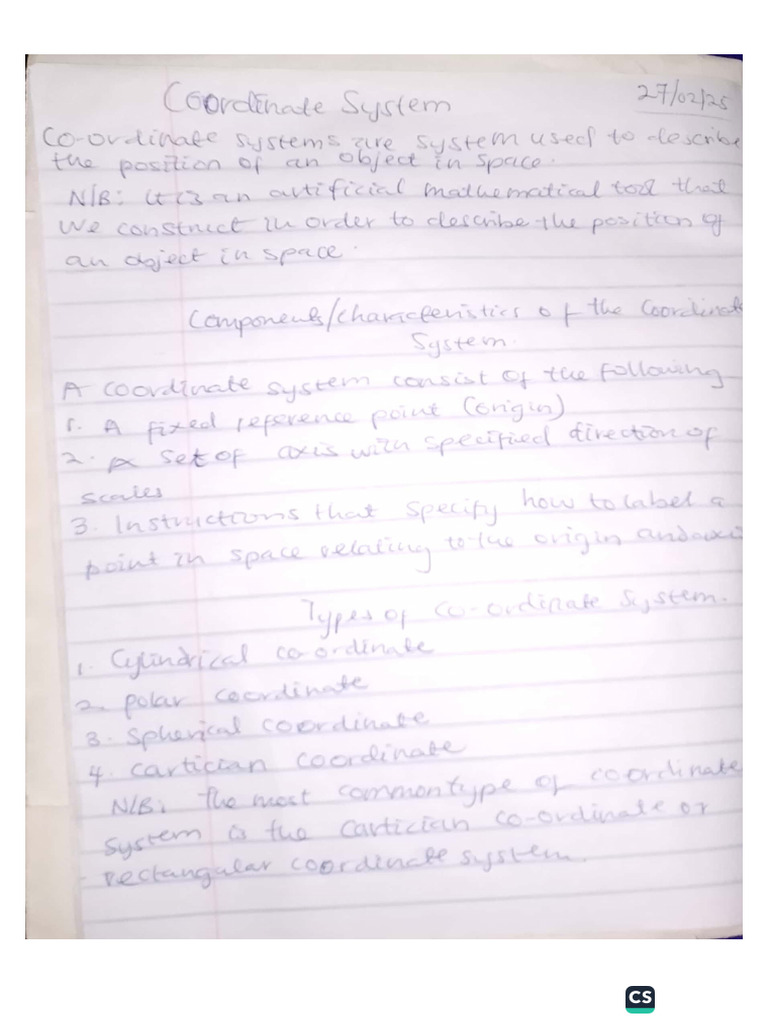 Coordinate System
27/02/25
Co-ordinate systems are system used to describe
the position of an object in space.
N/B: it is an artificial mathematical tool that
We construct in order to describe the position of
an object in space.
Components/characteristics of the Coordinate
System.
A coordinate system consist of the following
1. A fixed reference point (origin)
2. A set of axis with specified direction of
scales
3. Instructions that specify how to label a
point in space relating to the origin and axi
Types of co-ordinate system.
1. Cylindrical co-ordinate
2. polar coordinate
3. Spherical coordinate
4. Cartician coordinate
N/B: The most common type of coordinate
System is the Cartician co-ordinate or
rectangular coordinate system.
CS